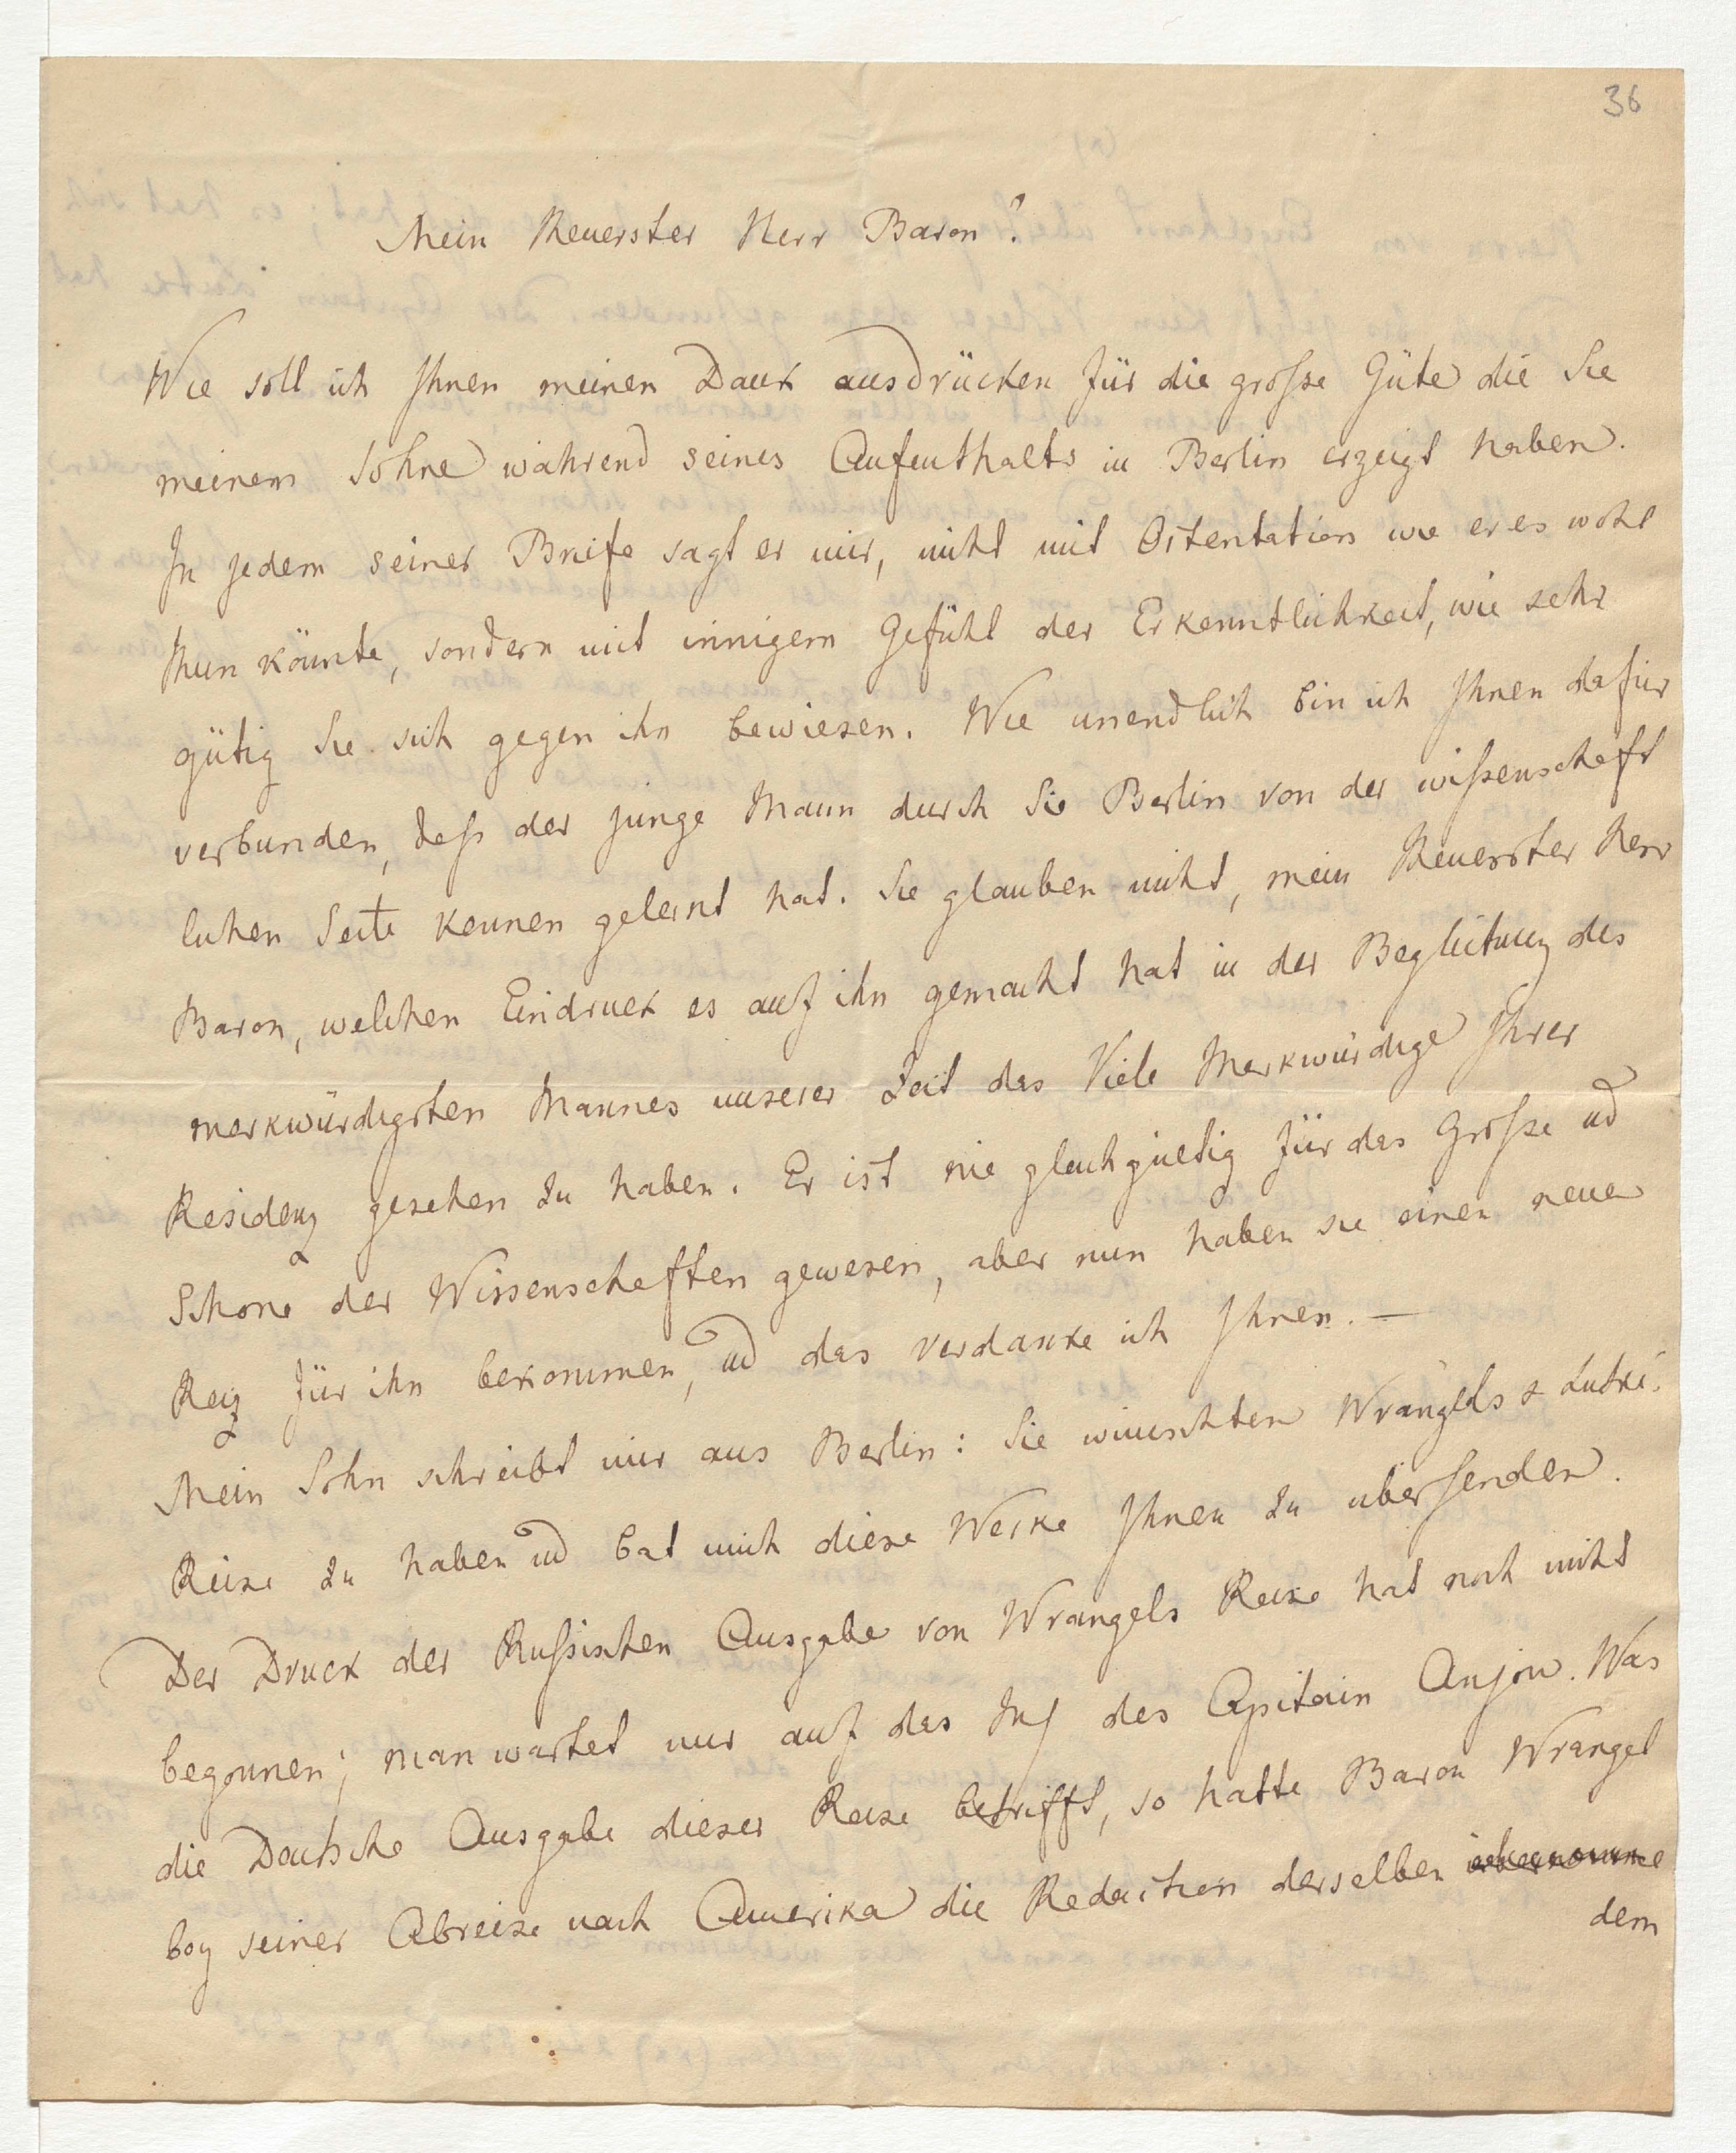 36
Mein theuerster Herr Baron!
Wie soll ich Ihnen meinen Dank ausdrücken für die große Güte die Sie
meinem Sohne während seines Aufenthalts in Berlin erzeigt haben.
In jedem seiner Briefe sagt er mir, nicht mit Ostentation wie er es wohl
thun könnte, sondern mit innigem Gefühl der Erkenntlichkeit, wie sehr
gütig Sie sich gegen ihn bewiesen. Wie unendlich bin ich Ihnen dafür
verbunden, daß der junge Mann durch Sie Berlin von der wißenschaft
lichen Seite kennen gelernt hat. Sie glauben nicht, mein theuerster Herr
Baron, welchen Eindruck es auf ihn gemacht hat in der Begleitung des
merkwürdigsten Mannes unserer Zeit das Viele Merkwürdige Ihrer
Residenz gesehen zu haben. Er ist nie gleichgueltig für das Große ud
Schöne der Wissenschaften gewesen, aber nun haben sie einen neuen
Reiz für ihn bekommen, ud das verdanke ich Ihnen. —
Mein Sohn schreibt mir aus Berlin: Sie wünschten Wrangels & Lutké.
Reise zu haben ud bat mich diese Werke Ihnen zu übersenden.
Der Druck der Rußischen Ausgabe von Wrangels Reise hat noch nicht
begonnen; man wartet nur auf das des Capitain Anjou. Was
die Deutsche Ausgabe dieser Reise betrifft, so hatte Baron Wrangel
bey seiner Abreise nach Amerika die Redaction derselben übernomme
dem